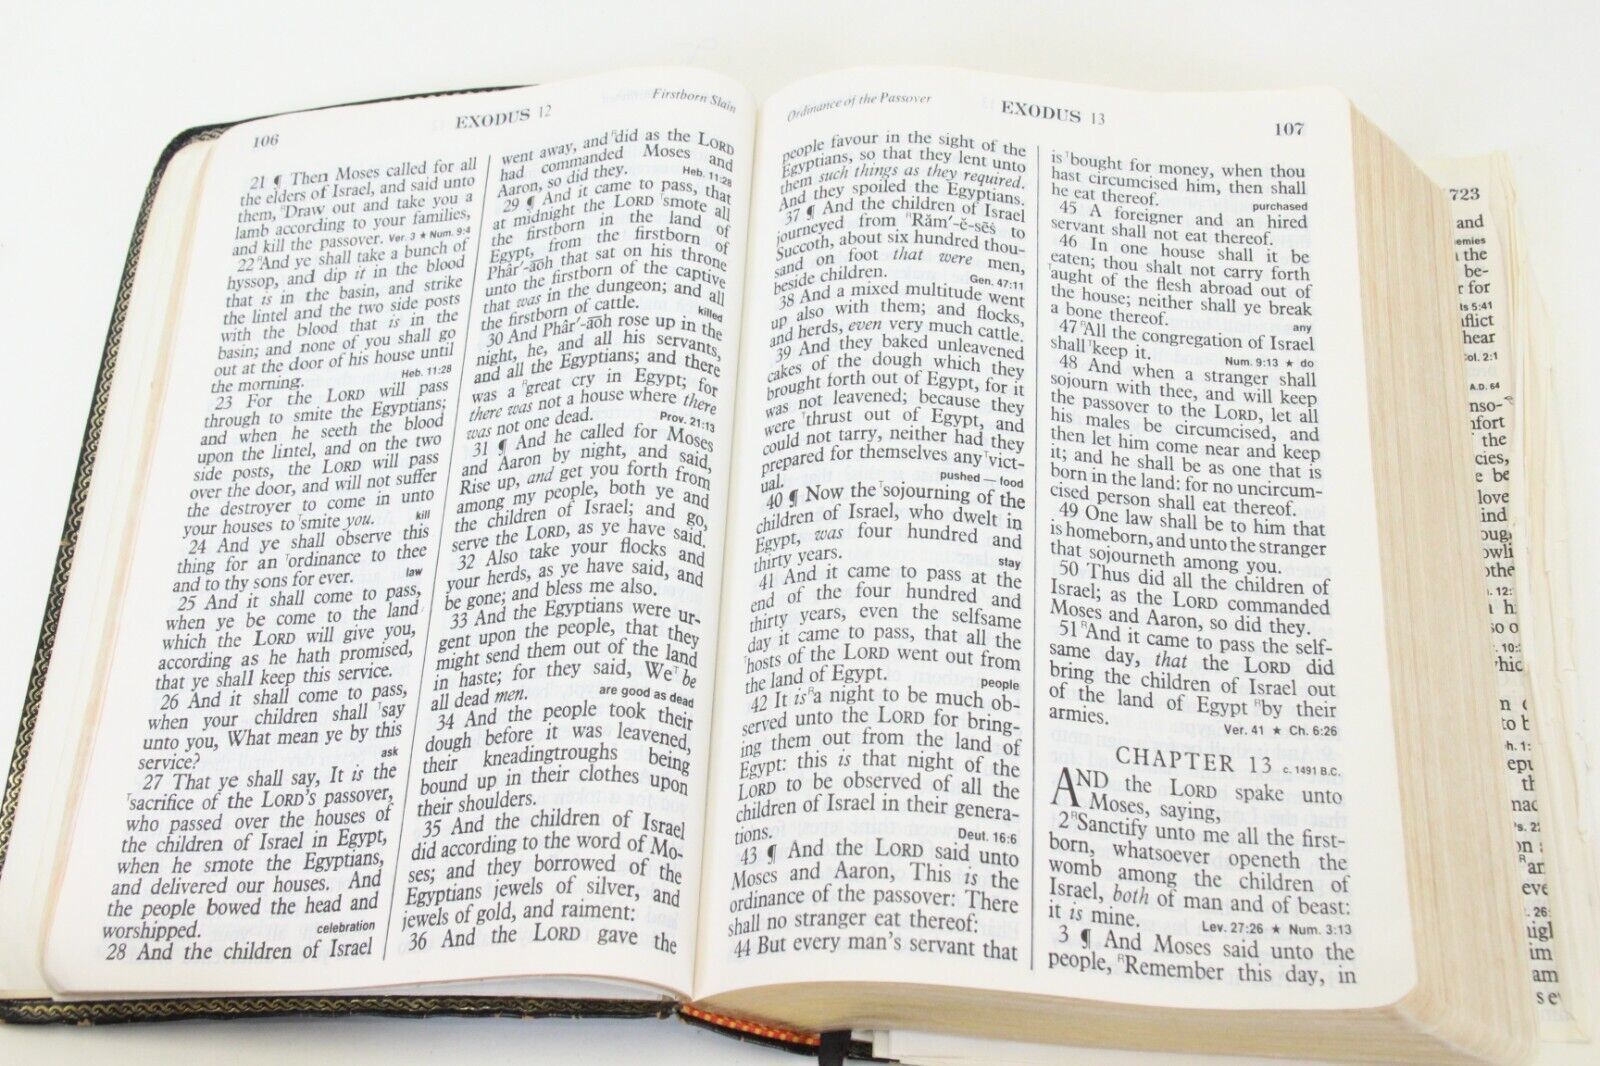 106
EXODUS 12
Firstborn Slain
21 ¶ Then Moses called for all
the elders of Israel, and said unto
them, ᴿDraw out and take you a
lamb according to your families,
and kill the passover. Ver. 3 ★ Num. 9:4
22 ᴿAnd ye shall take a bunch of
hyssop, and dip it in the blood
that is in the basin, and strike
the lintel and the two side posts
with the blood that is in the
basin; and none of you shall go
out at the door of his house until
the morning. Heb. 11:28
23 For the LORD will pass
through to smite the Egyptians;
and when he seeth the blood
upon the lintel, and on the two
side posts, the LORD will pass
over the door, and will not suffer
the destroyer to come in unto
your houses to ᵀsmite you. kill
24 And ye shall observe this
thing for an ᵀordinance to thee
and to thy sons for ever. law
25 And it shall come to pass,
when ye be come to the land
which the LORD will give you,
according as he hath promised,
that ye shall keep this service.
26 And it shall come to pass,
when your children shall ᵀsay
unto you, What mean ye by this
service? ask
27 That ye shall say, It is the
ᵀsacrifice of the LORD'S passover,
who passed over the houses of
the children of Israel in Egypt,
when he smote the Egyptians,
and delivered our houses. And
the people bowed the head and
worshipped. celebration
28 And the children of Israel
went away, and ᴿdid as the LORD
had commanded Moses and
Aaron, so did they. Heb. 11:28
29 ¶ And it came to pass, that
at midnight the LORD ᵀsmote all
the firstborn in the land of
Egypt, from the firstborn of
Phâr′-āōh that sat on his throne
unto the firstborn of the captive
that was in the dungeon; and all
the firstborn of cattle. killed
30 And Phâr′-āōh rose up in the
night, he, and all his servants,
and all the Egyptians; and there
was a ᴿgreat cry in Egypt; for
there was not a house where there
was not one dead. Prov. 21:13
31 ¶ And he called for Moses
and Aaron by night, and said,
Rise up, and get you forth from
among my people, both ye and
the children of Israel; and go,
serve the LORD, as ye have said.
32 Also take your flocks and
your herds, as ye have said, and
be gone; and bless me also.
33 And the Egyptians were ur-
gent upon the people, that they
might send them out of the land
in haste; for they said, We ᵀbe
all dead men. are good as dead
34 And the people took their
dough before it was leavened,
their kneadingtroughs being
bound up in their clothes upon
their shoulders.
35 And the children of Israel
did according to the word of Mo-
ses; and they borrowed of the
Egyptians jewels of silver, and
jewels of gold, and raiment:
36 And the LORD gave the
Ordinance of the Passover
EXODUS 13
107
people favour in the sight of the
Egyptians, so that they lent unto
them such things as they required.
And they spoiled the Egyptians.
37 ¶ And the children of Israel
journeyed from ᴿRăm′-ĕ-sēs̄ to
Succoth, about six hundred thou-
sand on foot that were men,
beside children. Gen. 47:11
38 And a mixed multitude went
up also with them; and flocks,
and herds, even very much cattle.
39 And they baked unleavened
cakes of the dough which they
brought forth out of Egypt, for it
was not leavened; because they
were ᵀthrust out of Egypt, and
could not tarry, neither had they
prepared for themselves any ᵀvict-
ual. pushed — food
40 ¶ Now the ᵀsojourning of the
children of Israel, who dwelt in
Egypt, was four hundred and
thirty years. stay
41 And it came to pass at the
end of the four hundred and
thirty years, even the selfsame
day it came to pass, that all the
ᵀhosts of the LORD went out from
the land of Egypt. people
42 It is ᴿa night to be much ob-
served unto the LORD for bring-
ing them out from the land of
Egypt: this is that night of the
LORD to be observed of all the
children of Israel in their genera-
tions. Deut. 16:6
43 ¶ And the LORD said unto
Moses and Aaron, This is the
ordinance of the passover: There
shall no stranger eat thereof:
44 But every man's servant that
is ᵀbought for money, when thou
hast circumcised him, then shall
he eat thereof. purchased
45 A foreigner and an hired
servant shall not eat thereof.
46 In one house shall it be
eaten; thou shalt not carry forth
ᵀaught of the flesh abroad out of
the house; neither shall ye break
a bone thereof. any
47 ᴿAll the congregation of Israel
shall ᵀkeep it. Num. 9:13 ★ do
48 And when a stranger shall
sojourn with thee, and will keep
the passover to the LORD, let all
his males be circumcised, and
then let him come near and keep
it; and he shall be as one that is
born in the land: for no uncircum-
cised person shall eat thereof.
49 One law shall be to him that
is homeborn, and unto the stranger
that sojourneth among you.
50 Thus did all the children of
Israel; as the LORD commanded
Moses and Aaron, so did they.
51 ᴿAnd it came to pass the self-
same day, that the LORD did
bring the children of Israel out
of the land of Egypt ᴿby their
armies. Ver. 41 ★ Ch. 6:26
CHAPTER 13 c. 1491 B.C.
AND the LORD spake unto
Moses, saying,
2 ᴿSanctify unto me all the first-
born, whatsoever openeth the
womb among the children of
Israel, both of man and of beast:
it is mine. Lev. 27:26 ★ Num. 3:13
3 ¶ And Moses said unto the
people, ᴿRemember this day, in
723
and
the
be-
for
5:41
hear
Col. 2:1
A.D. 64
the
love